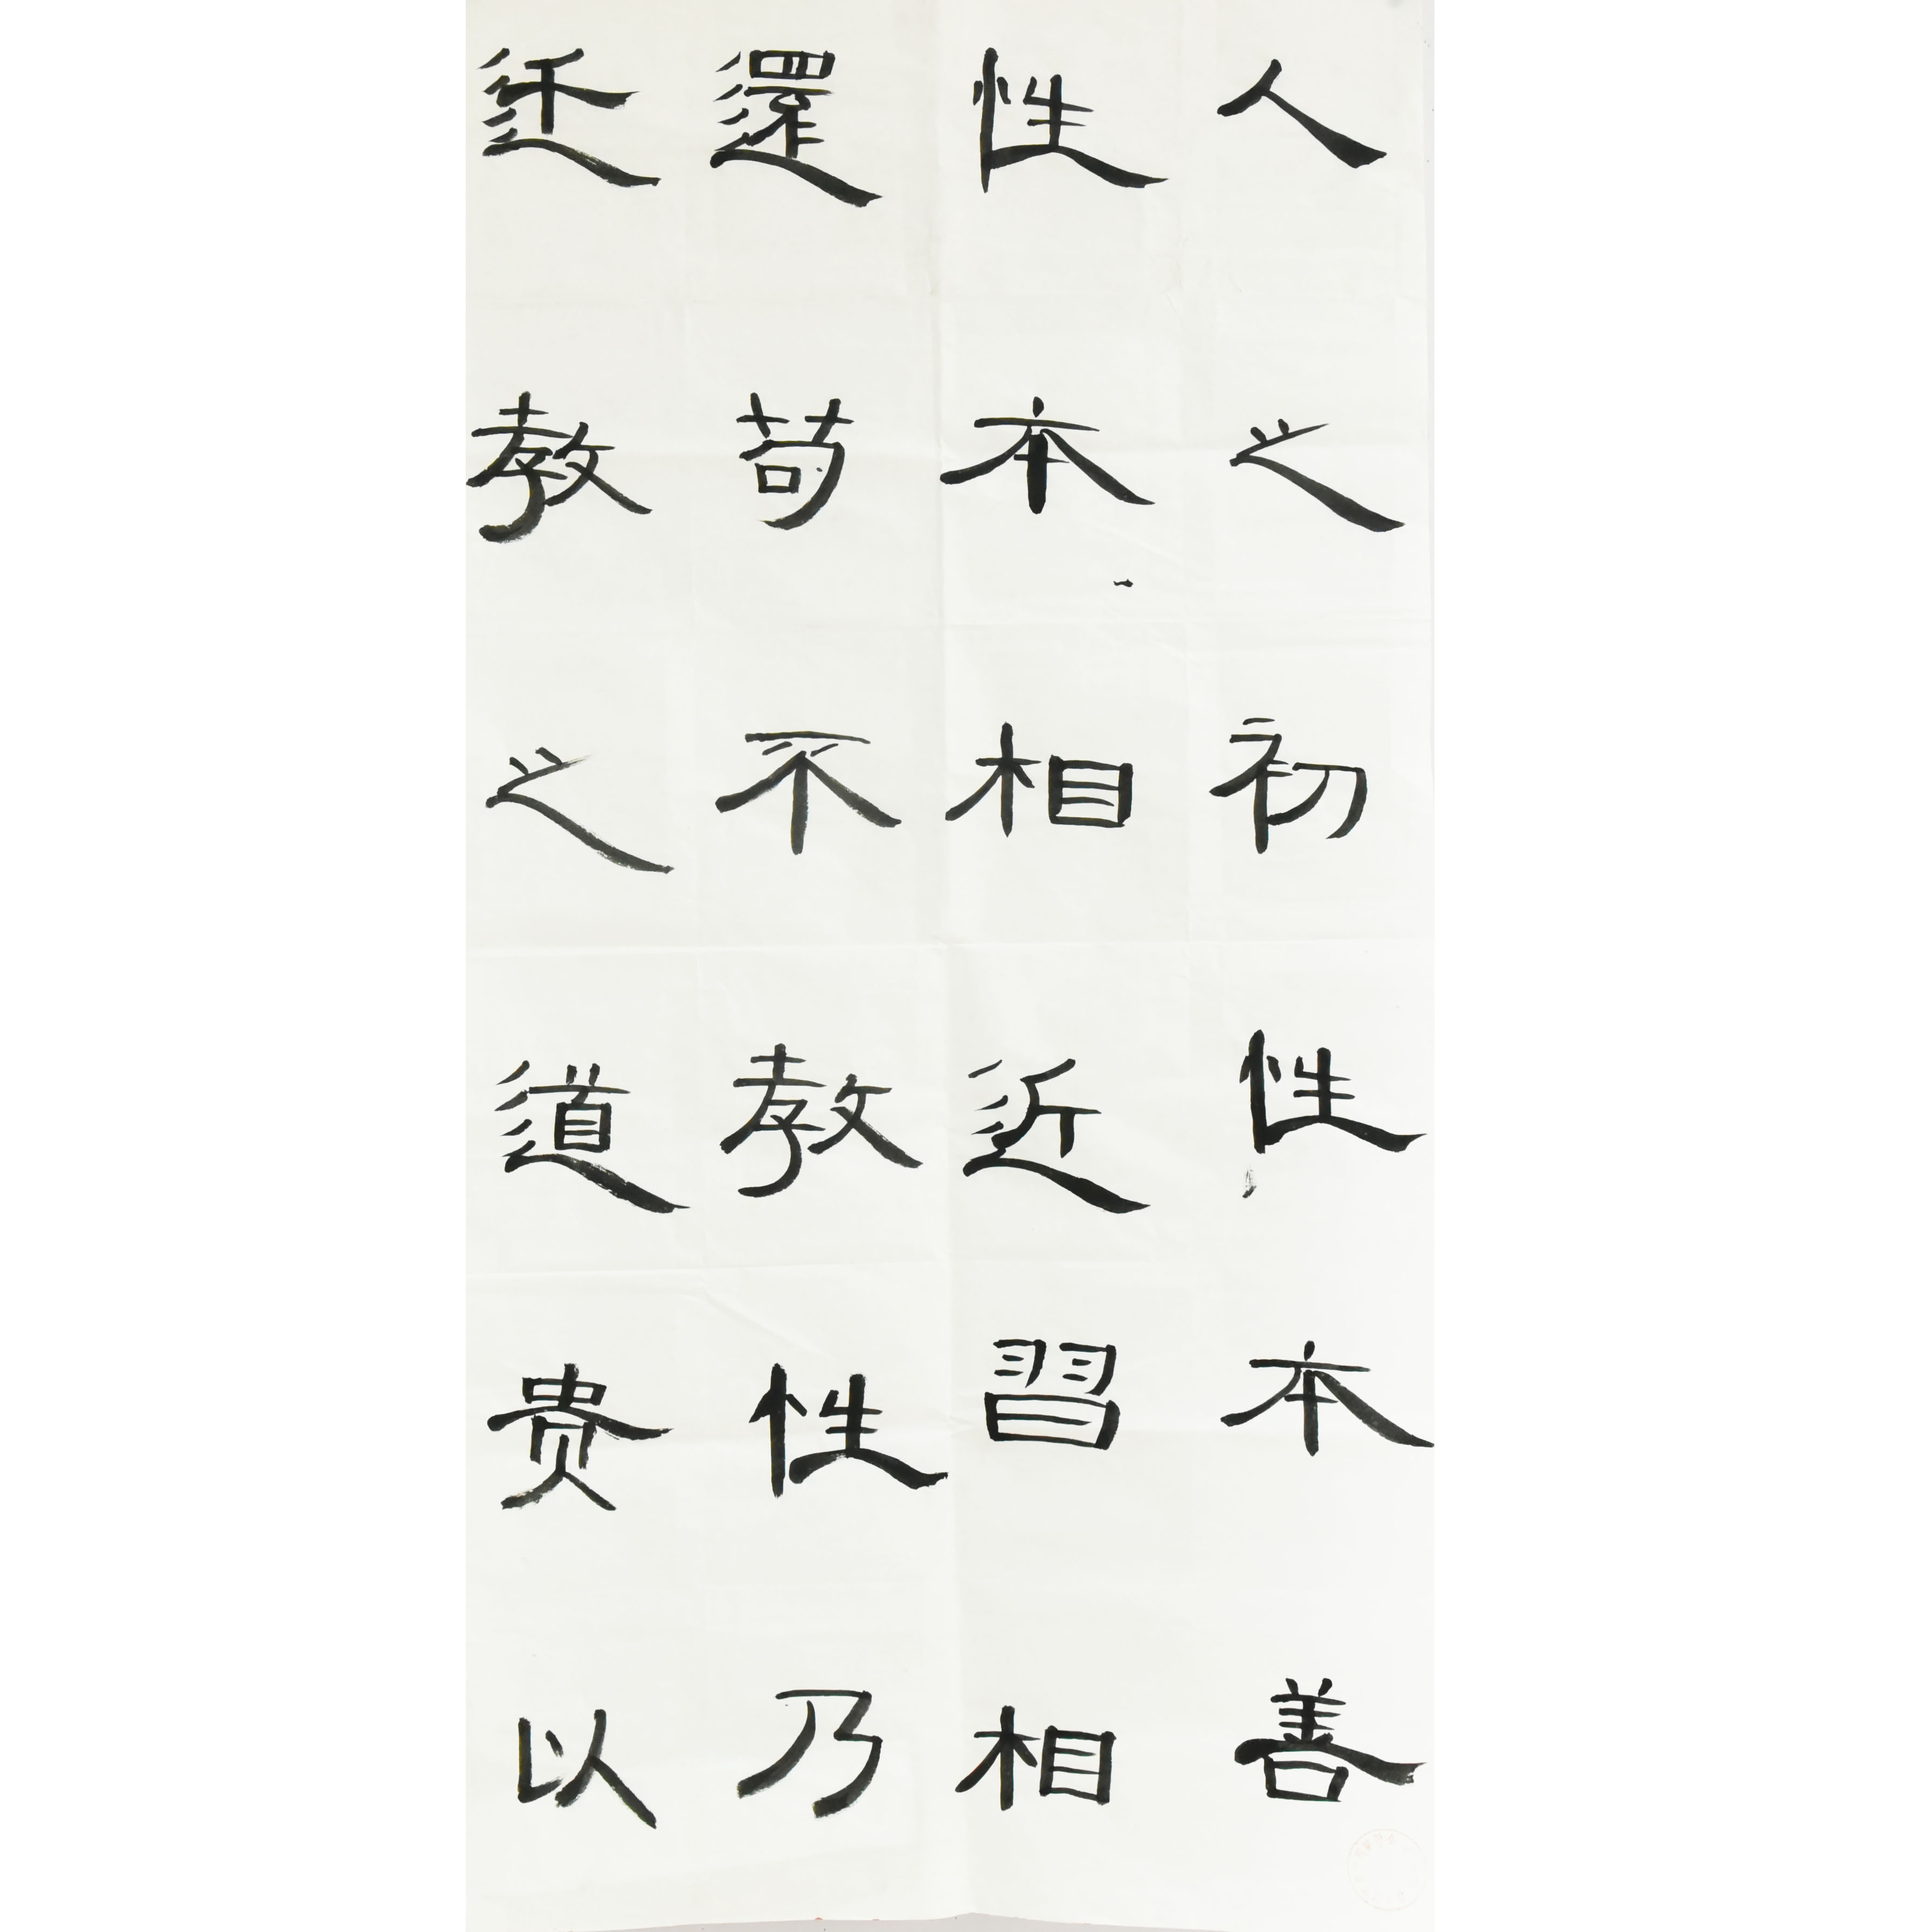 人之初性本善
性本相近習相
還苟不教性乃
迁教之道贵以